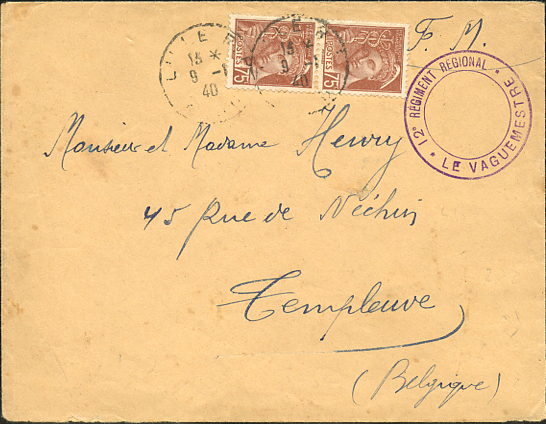 LILLE
13 *
9 -1
40
POSTES
75
75
F. M.
12e RÉGIMENT RÉGIONAL * LE VAGUEMESTRE *
Monsieur et Madame Henry
45 Rue de Néchin
Templeuve
(Belgique)